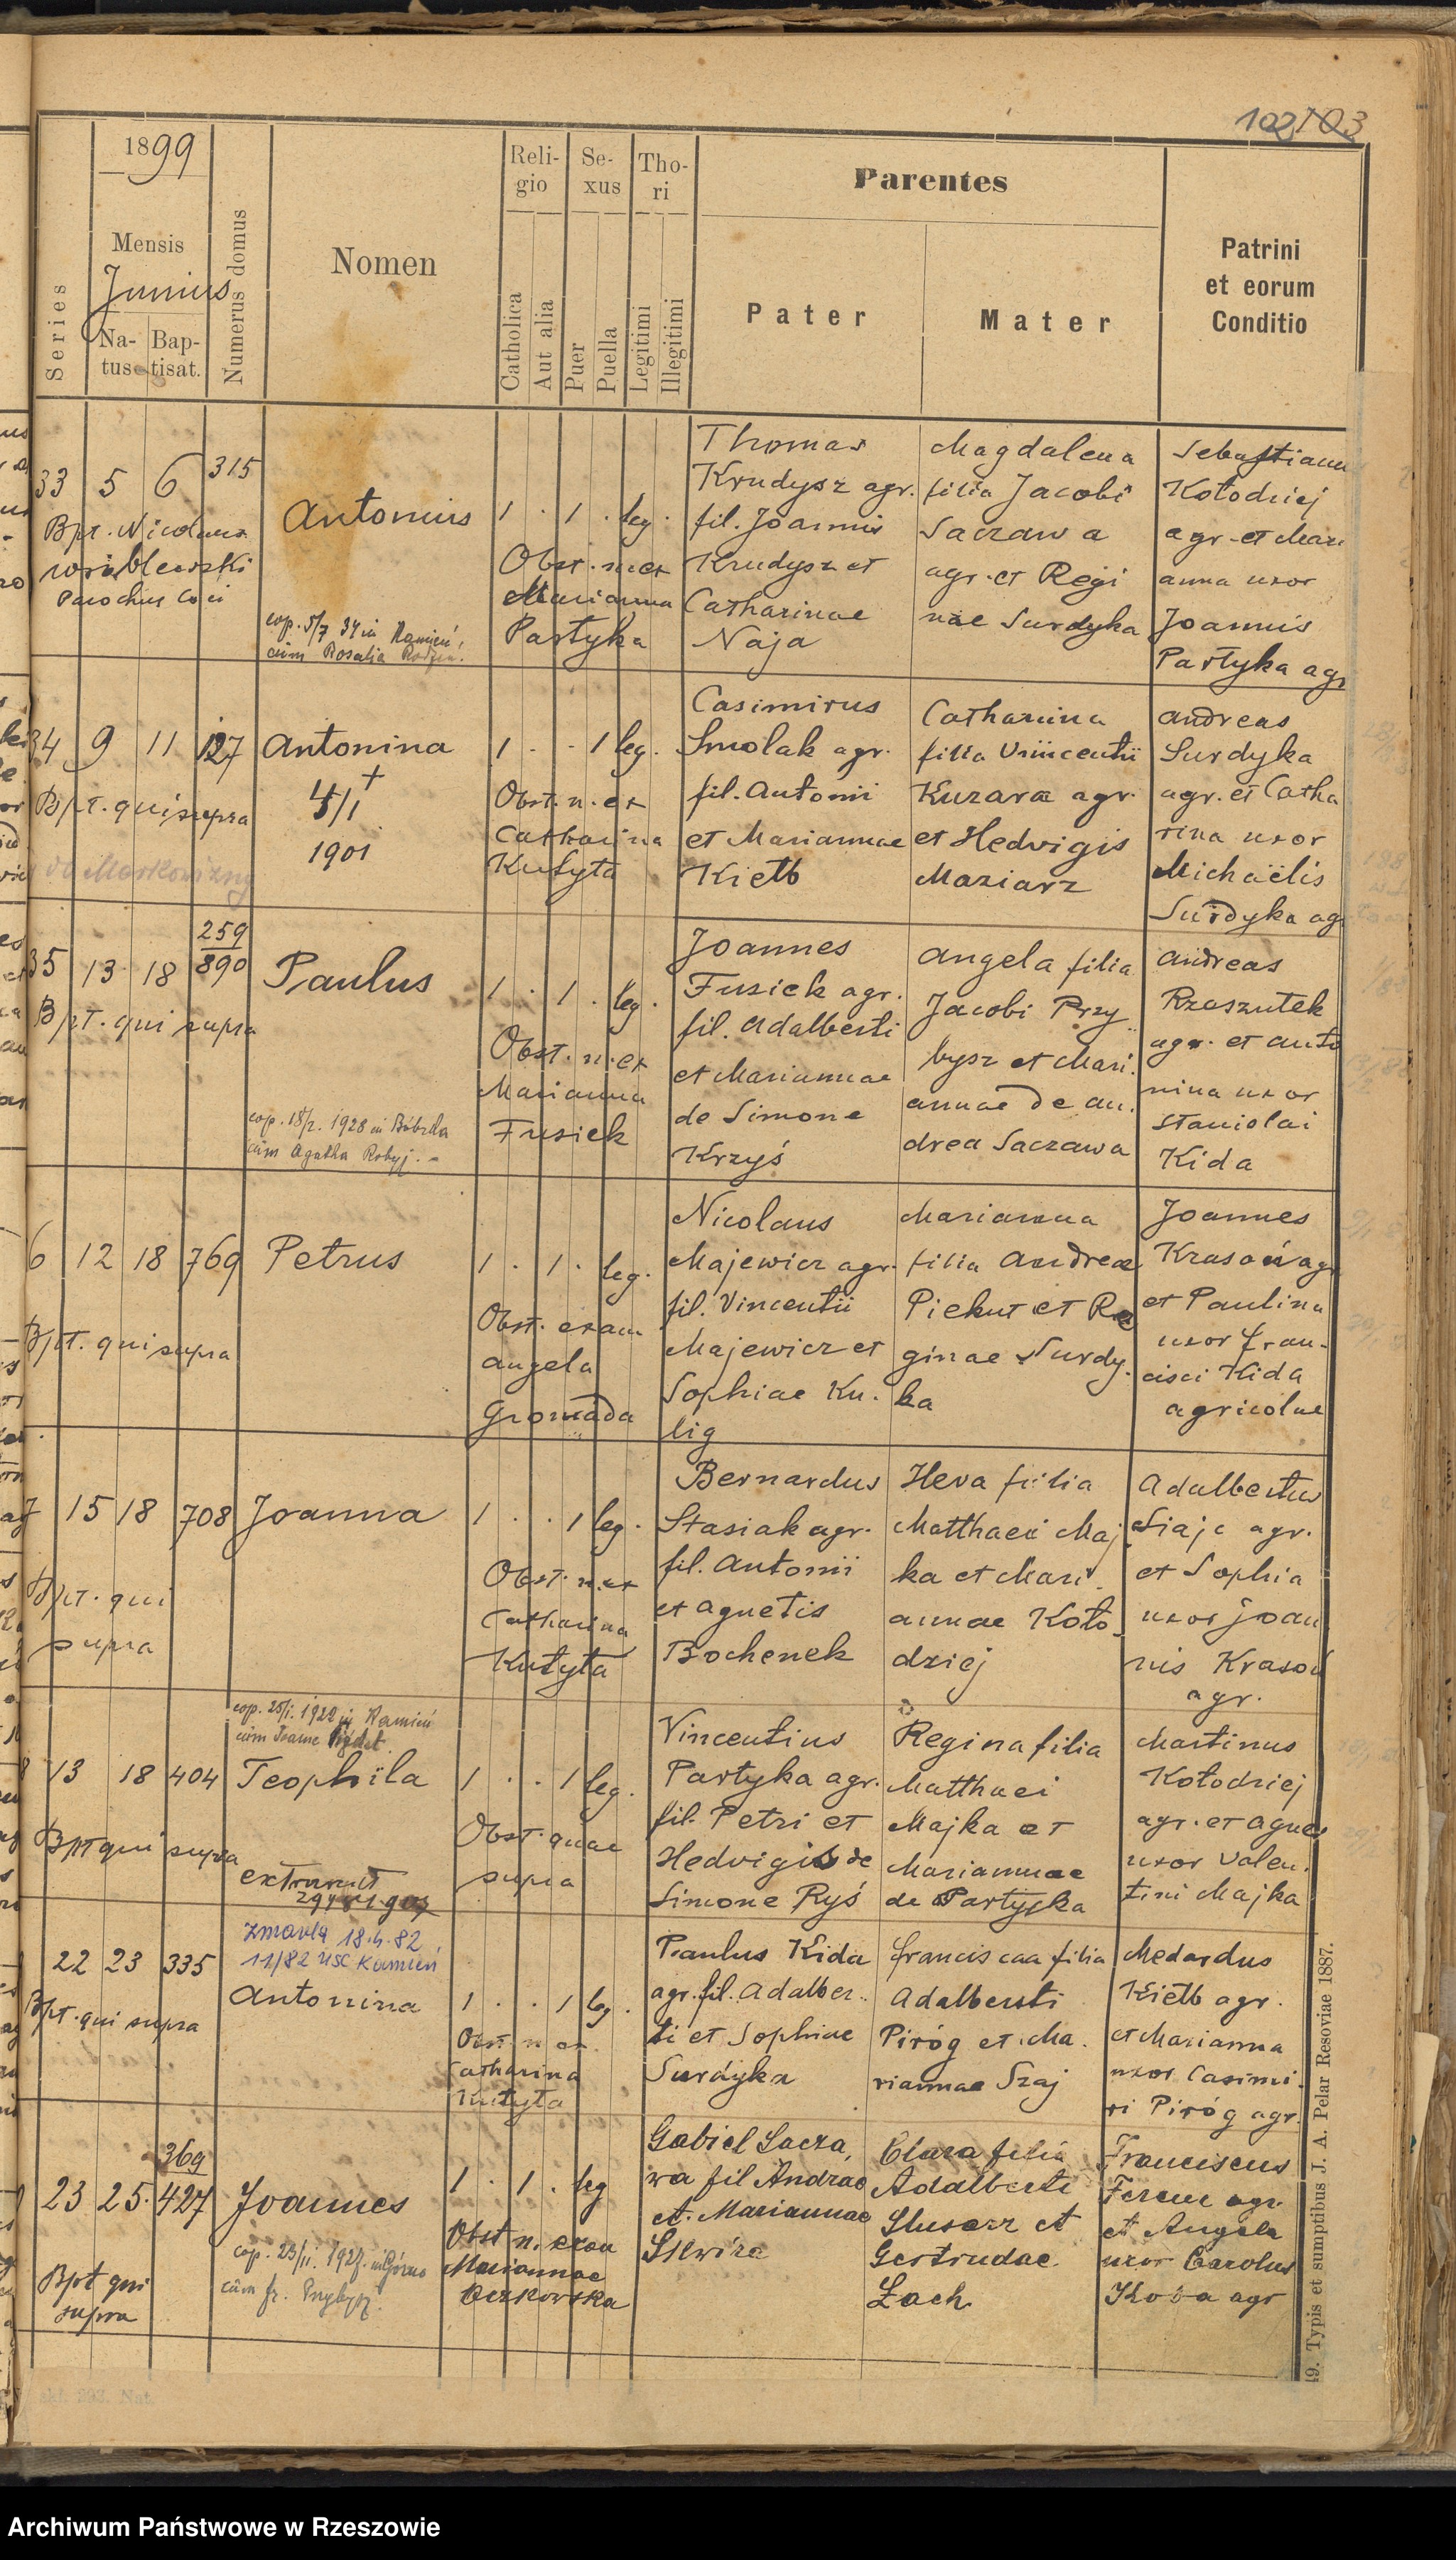 102 103
1899
Mensis
Junius
Series
Natus
Baptisat.
Numerus domus
Nomen
Religio
Catholica
Aut alia
Sexus
Puer
Puella
Thori
Legitimi
Illegitimi
Parentes
Pater
Mater
Patrini
et eorum
Conditio
33 5 6 315
Bpt. Nicolaus
Wróblewski
Parochus loci
Antonius
cop. 5/7 34 in Kamień
cum Rosalia
1 . 1 . leg.
Obst. n. ex
Marianna
Partyka
Thomas
Krudysz agr.
fil. Joannis
Krudysz et
Catharinae
Naja
Magdalena
filia Jacobi
Saczawa
agr. et Regi
nae Surdyka
Sebastianus
Kołodziej
agr. et Mari
anna uxor
Joannis
Partyka agr
34 9 11 127
Bpt. qui supra
Antonina
+
4/1
1901
1 . . 1 leg.
Obst. n. ex
Catharina
Kutyła
Casimirus
Smolak agr.
fil. Antonii
et Mariannae
Kiełb
Catharina
filia Vincentii
Kuzara agr.
et Hedvigis
Maziarz
Andreas
Surdyka
agr. et Catha
rina uxor
Michaëlis
Surdyka ag
35 13 18 259
890
Bpt. qui supra
Paulus
cop. 18/2. 1928 in
cum Agatha
1 . 1 . leg.
Obst. n. ex
Marianna
Fusiek
Joannes
Fusiek agr.
fil. Adalberti
et Mariannae
de Simone
Krzyś
Angela filia
Jacobi Przy
bysz et Mari.
annae de An.
drea Saczawa
Andreas
Rzeszutek
agr. et Anto
nina uxor
Stanislai
Kida
6 12 18 769
Bpt. qui supra
Petrus
1 . 1 . leg.
Obst. exam
Angela
Gromada
Nicolaus
Majewicz agr.
fil. Vincentii
Majewicz et
Sophiae Ku.
lig
Marianna
filia Andreae
Piekut et Re
ginae Surdy.
ka
Joannes
Krasoń agr
et Paulina
uxor Fran.
cisci Kida
agricolae
7 15 18 708
Bpt. qui
supra
Joanna
1 . . 1 leg.
Obst. n. ex
Catharina
Kutyła
Bernardus
Stasiak agr.
fil. Antonii
et Agnetis
Bochenek
Heva filia
Matthaei Maj
ka et Mari.
annae Koło
dziej
Adalbertus
Siajc agr.
et Sophia
uxor Joan
nis Krasoń
agr.
cop. 25/1. 1922 in Kamień
cum Joanne
8 13 18 404
Bpt qui supra
Teophila
1 . . 1 leg.
Obst. quae
supra
Vincentius
Partyka agr.
fil. Petri et
Hedvigis de
Simone Ryś
Regina filia
Matthaei
Majka et
Mariannae
de Partyka
Martinus
Kołodziej
agr. et Agnes
uxor Valen.
tini Majka
Zmarła 18.4.82
11/82 USC Kamień
22 23 335
Bpt. qui supra
Antonina
1 . . 1 leg.
Obst. n ex.
Catharina
Kutyła
Paulus Kida
agr. fil. Adalber.
ti et Sophiae
Surdyka
Franciscaa filia
Adalberti
Piróg et Ma.
riannae Szaj
Medardus
Kiełb agr.
et Marianna
uxor Casimi.
ri Piróg agr.
369
23 25. 427
Bpt qui
supra
Joannes
cop. 23/11. 1927. in Górno
cum fr. Przybysz
1 . 1 . leg
Obst n. exam
Mariannae
Gabiel Sacza,
wa fil Andrae
et. Mariannae
Clara filia
Adalberti
Slusarz et
Gertrudae
Zach
Franciscus
Ferenc agr.
et Angela
uxor Carolus
agr
49. Typis et sumptibus J. A. Pelar Resoviae 1887.
Archiwum Państwowe w Rzeszowie